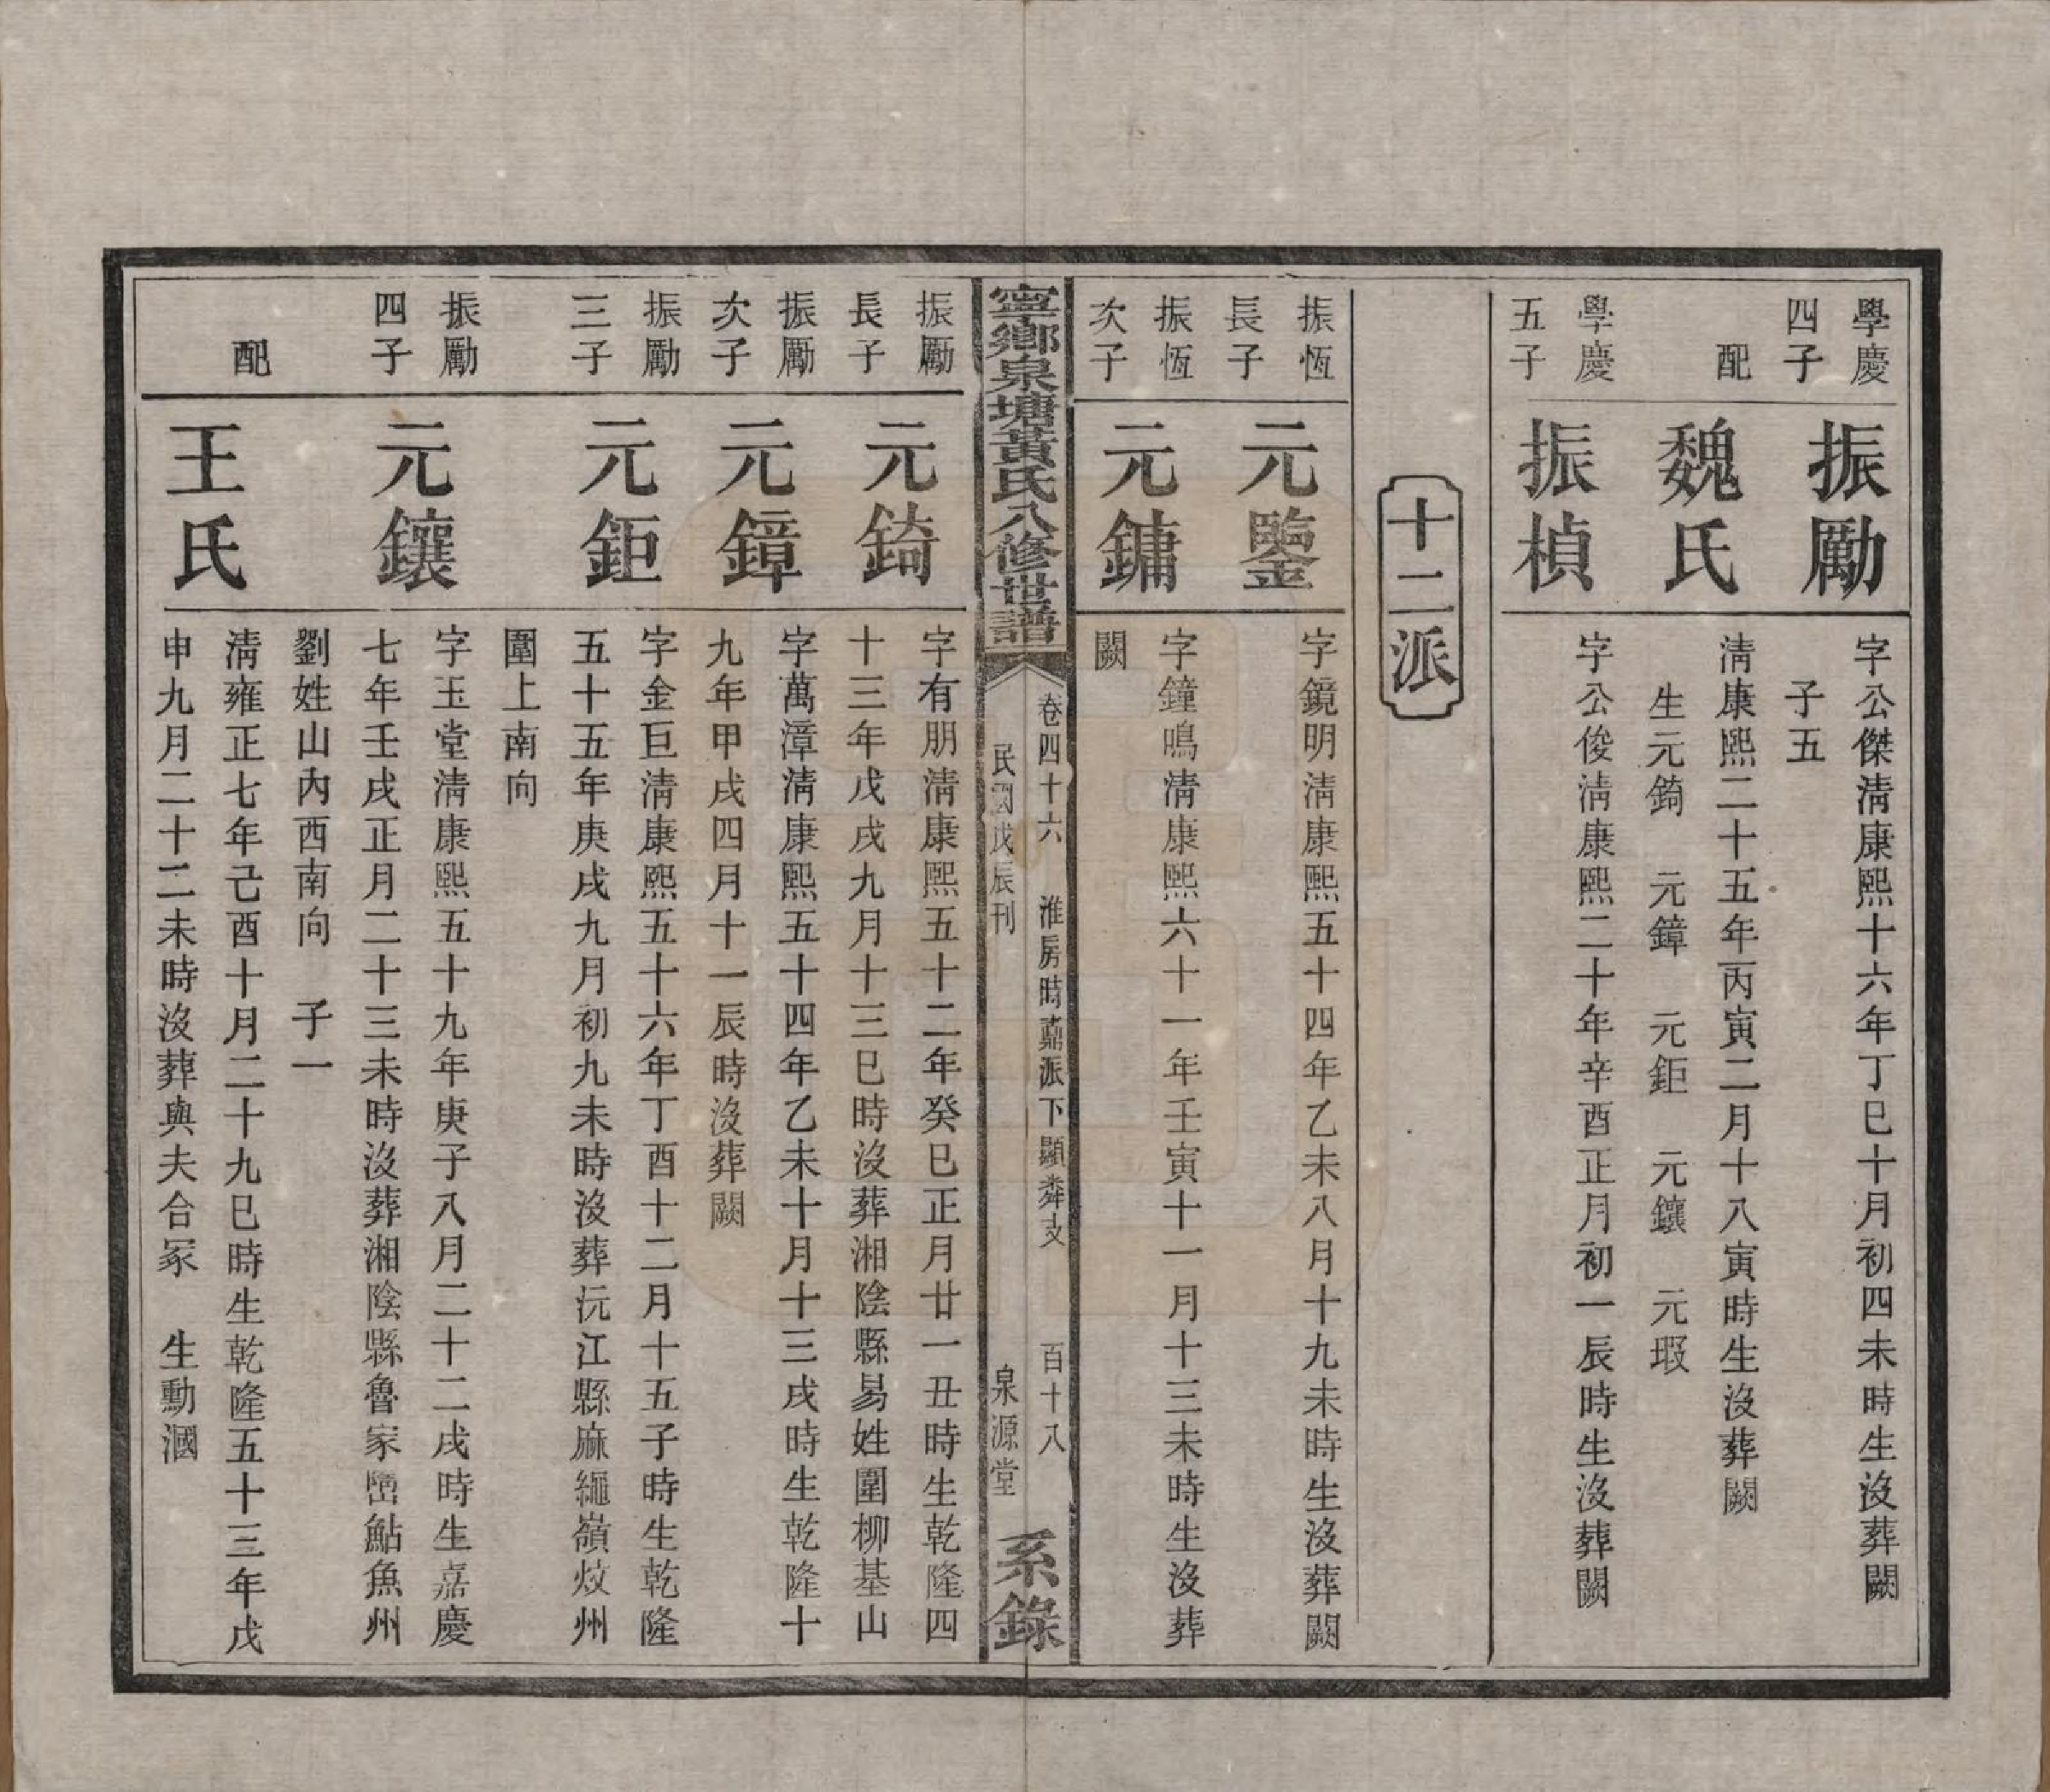 學慶
四子
振勵
字公傑淸康熙十六年丁巳十月初四未時生沒葬闕
子五
配
魏氏
淸康熙二十五年丙寅二月十八寅時生沒葬闕
生元錡　元鏱　元鉅　元鑲　元瑕
學慶
五子
振楨
字公俊淸康熙二十年辛酉正月初一辰時生沒葬闕
十二派
振恆
長子
元鑒
字鏡明淸康熙五十四年乙未八月十九未時生沒葬闕
振恆
次子
元鏞
字鐘鳴淸康熙六十一年壬寅十一月十三未時生沒葬
闕
寧鄉泉塘黃氏八修世譜
卷四十六　淮房時薡派下顯粦支　百十八
民國戊辰刊　泉源堂
系錄
振勵
長子
元錡
字有朋淸康熙五十二年癸巳正月廿一丑時生乾隆四
十三年戊戌九月十三巳時沒葬湘陰縣易姓圍柳基山
振勵
次子
元鏱
字萬漳淸康熙五十四年乙未十月十三戌時生乾隆十
九年甲戌四月十一辰時沒葬闕
振勵
三子
元鉅
字金巨淸康熙五十六年丁酉十二月十五子時生乾隆
五十五年庚戌九月初九未時沒葬沅江縣麻繩嶺炆州
圍上南向
振勵
四子
元鑲
字玉堂淸康熙五十九年庚子八月二十二戌時生嘉慶
七年壬戌正月二十三未時沒葬湘陰縣魯家塯鮎魚州
劉姓山內西南向　子一
配
王氏
淸雍正七年己酉十月二十九巳時生乾隆五十三年戊
申九月二十二未時沒葬與夫合冢　生勳漍